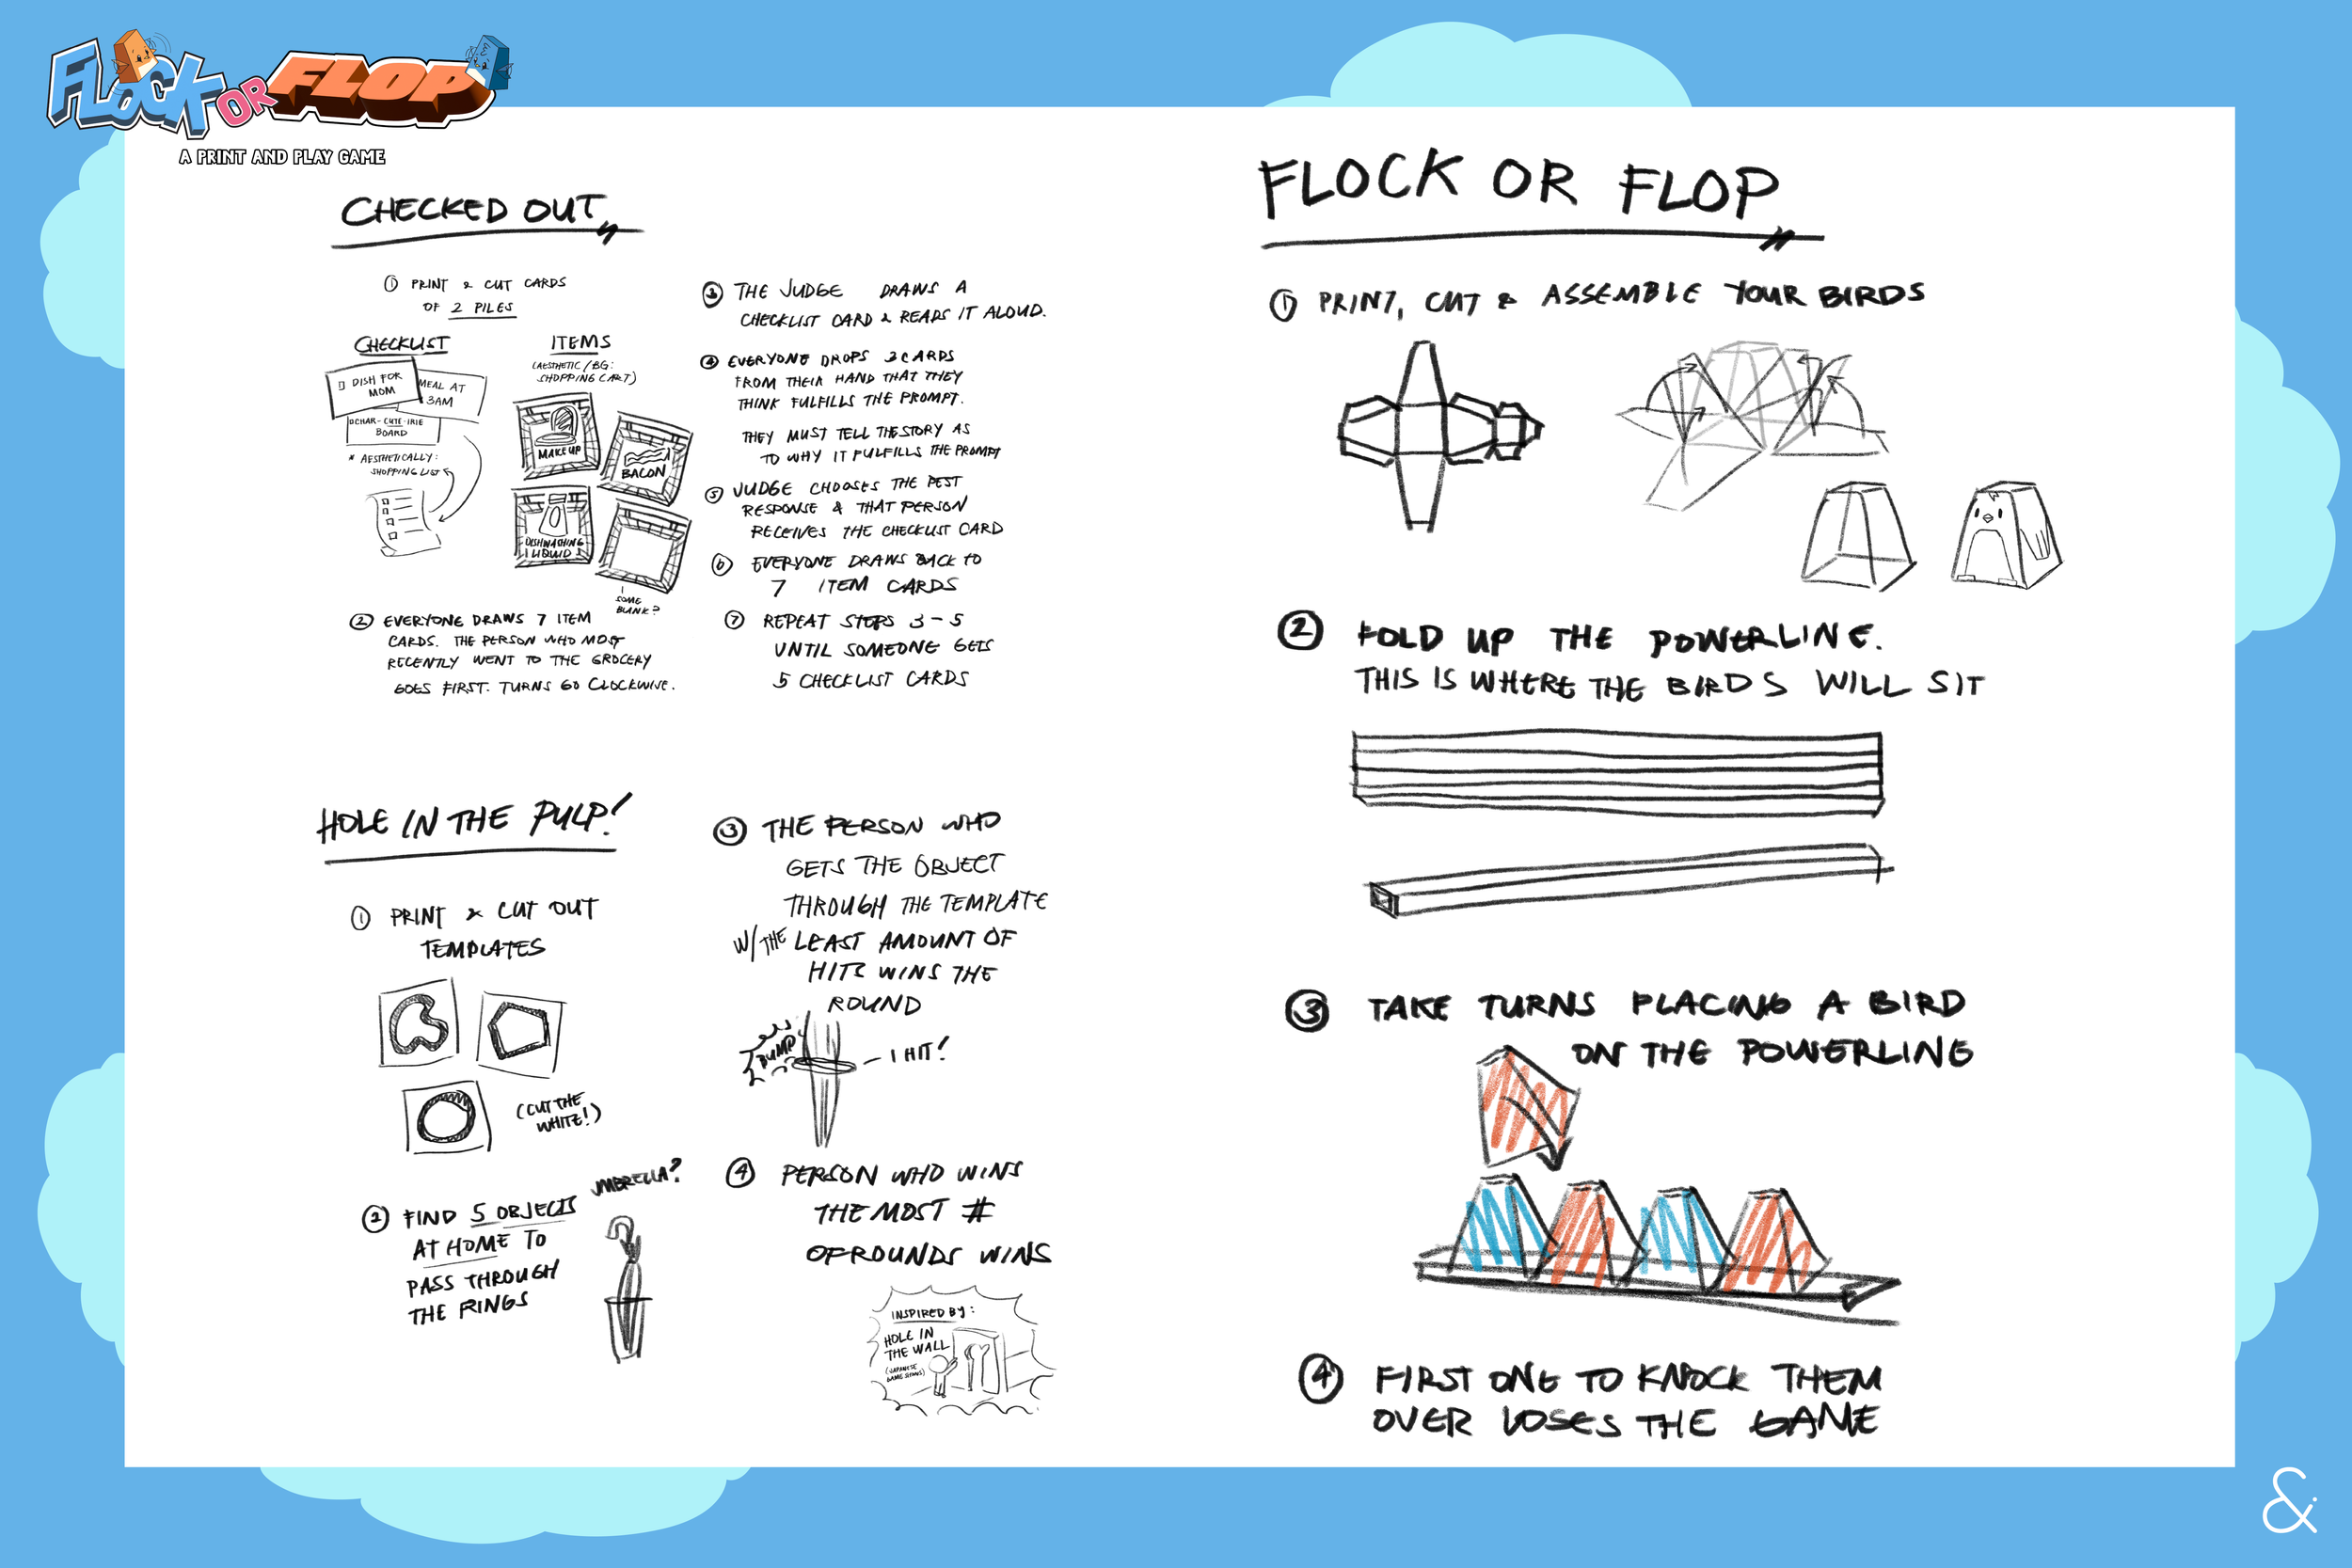 FLOCK OR FLOP
A PRINT AND PLAY GAME
CHECKED OUT
① PRINT & CUT CARDS
OF 2 PILES
CHECKLIST
DISH FOR
MOM
MEAL AT
3AM
CHAR-CUTE-IRIE
BOARD
* AESTHETICALLY:
SHOPPING LIST
ITEMS
(AESTHETIC/BG:
SHOPPING CART)
MAKEUP
BACON
DISHWASHING
LIQUID
SOME
BLANK?
② EVERYONE DRAWS 7 ITEM
CARDS. THE PERSON WHO MOST
RECENTLY WENT TO THE GROCERY
GOES FIRST. TURNS GO CLOCKWISE.
③ THE JUDGE DRAWS A
CHECKLIST CARD & READS IT ALOUD.
④ EVERYONE DROPS 2 CARDS
FROM THEIR HAND THAT THEY
THINK FULFILLS THE PROMPT.
THEY MUST TELL THE STORY AS
TO WHY IT FULFILLS THE PROMPT
⑤ JUDGE CHOOSES THE BEST
RESPONSE & THAT PERSON
RECEIVES THE CHECKLIST CARD
⑥ EVERYONE DRAWS BACK TO
7 ITEM CARDS
⑦ REPEAT STEPS 3-5
UNTIL SOMEONE GETS
5 CHECKLIST CARDS
HOLE IN THE PULP!
① PRINT & CUT OUT
TEMPLATES
(CUT THE
WHITE!)
② FIND 5 OBJECTS
AT HOME TO
PASS THROUGH
THE RINGS
UMBRELLA?
③ THE PERSON WHO
GETS THE OBJECT
THROUGH THE TEMPLATE
W/ THE LEAST AMOUNT OF
HITS WINS THE
ROUND
BUMP
1 HIT!
④ PERSON WHO WINS
THE MOST #
OF ROUNDS WINS
INSPIRED BY:
HOLE IN
THE WALL
(JAPANESE
GAME SHOWS)
FLOCK OR FLOP
① PRINT, CUT & ASSEMBLE YOUR BIRDS
② FOLD UP THE POWERLINE.
THIS IS WHERE THE BIRDS WILL SIT
③ TAKE TURNS PLACING A BIRD
ON THE POWERLINE
④ FIRST ONE TO KNOCK THEM
OVER LOSES THE GAME
&